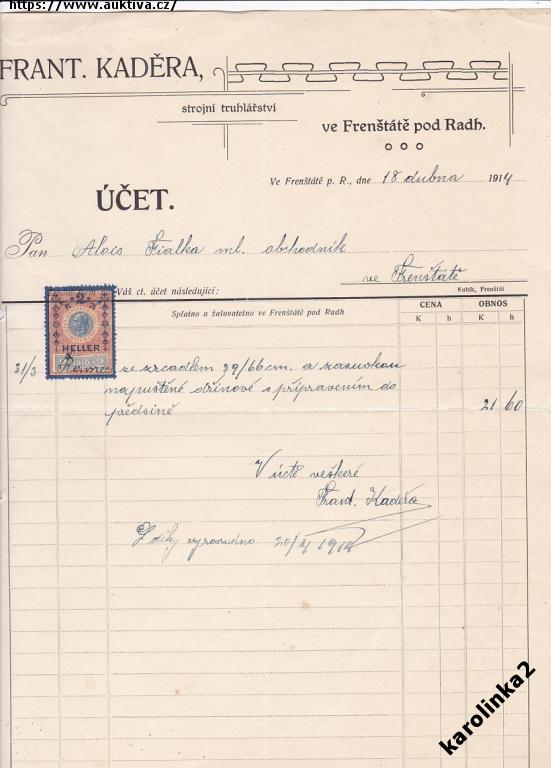 https://www.auktiva.cz/
FRANT. KADĚRA,
strojní truhlářství
ve Frenštátě pod Radh.
Ve Frenštátě p. R., dne 18 dubna 1914
ÚČET.
Pan Alois Fialka ml. obchodník
ve Frenštátě
Váš ct. účet následující:
Kubík, Frenštát
Splatno a žalovatelno ve Frenštátě pod Radh
CENA OBNOS
K h K h
2
HELLER
1910
31/3 Rámec ze zrcadlem 39/66 cm. a zasuvkou
napuštěné s připravením do
předsině 21 60
V úctě veškeré
Frant. Kaděra
S díky vyrovnáno 20/4 1914
karolinka2